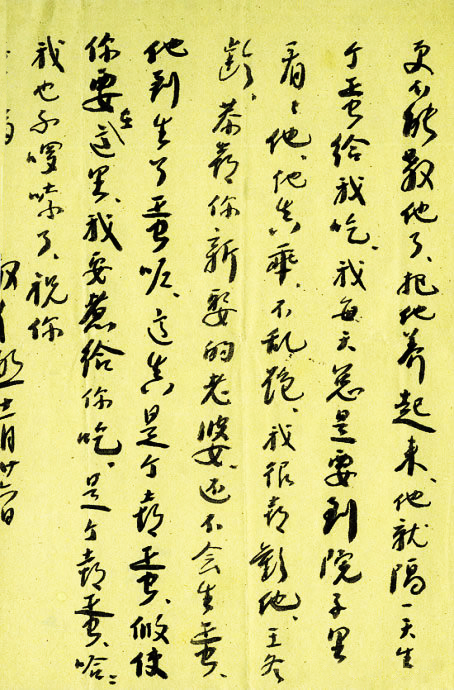 更不能杀他了、把他养起来、他就隔一天生
个蛋给我吃、我每天总是要到院子里
看々他、他真乖、不乱跑、我很喜欢他、王冬
龄、恭喜你新娶的老婆、还不会生蛋、
他到生了蛋呢、这真是个喜蛋、使
你要在这里、我要煮给你吃、是个喜蛋、哈々
我也不啰嗦了、祝你
十一月廿六日